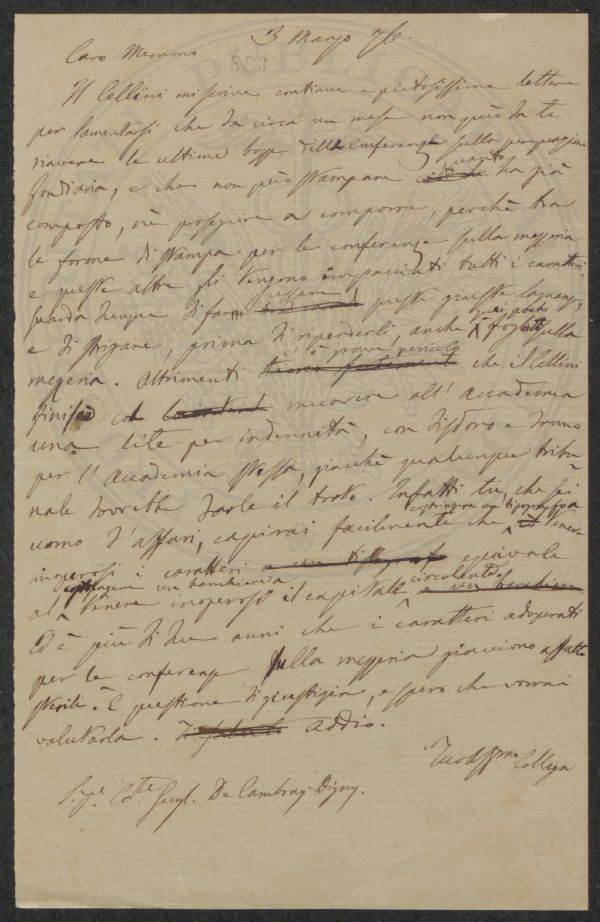 3 Marzo 76.
Caro Mecumo
Il Cellini mi scrive continue e pietosissime lettere
per lamentarsi che da circa un mese non può da te
riavere le ultime bozze delle Conferenze sulla perequazione
fondiaria, e che non può stampare quanto ha già
composto, nè proseguire a comporre, perchè tra
le forme di stampa per le conferenze sulla mezzeria
e queste altre gli tengono impacciati tutti i caratteri.
Guarda dunque di far cessare queste giuste lagnanze,
e di strigare, prima di riprenderli, anche quei pochi foglietti sulla
mezzeria. Altrimenti c'è grave pericolo che il Cellini
finisca col muovere all'Accademia
una lite per indennità, con disdoro e danno
per l'Accademia stessa, giacchè qualunque tribu-
nale dovrebbe darle il torto. Infatti tu, che sei
uomo d'affari, capirai facilmente che costringere un tipografo a tenere
inoperosi i caratteri equivale
al costringere un banchiere a tenere inoperoso il capitale circolante.
Ed è più di due anni che i caratteri adoperati
per le conferenze sulla mezzeria giacciono affatto
sterili. È questione di giustizia, e spero che vorrai
valutarla. Addio.
Tuo Aff.mo Collega
Sig.re C.te Gugl. De Cambray-Digny.